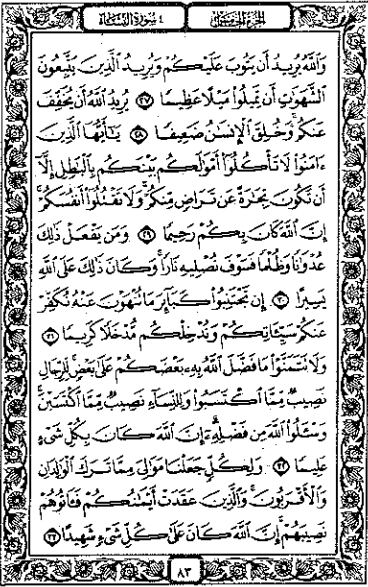 سورة النساء ٤
الجزء الخامس
وَاللَّهُ يُرِيدُ أَن يَتُوبَ عَلَيْكُمْ وَيُرِيدُ الَّذِينَ يَتَّبِعُونَ
الشَّهَوَاتِ أَن تَمِيلُوا مَيْلًا عَظِيمًا ﴿٢٧﴾ يُرِيدُ اللَّهُ أَن يُخَفِّفَ
عَنكُمْ وَخُلِقَ الْإِنسَانُ ضَعِيفًا ﴿٢٨﴾ يَٰٓأَيُّهَا الَّذِينَ
ءَامَنُوا لَا تَأْكُلُوا أَمْوَٰلَكُم بَيْنَكُم بِالْبَٰطِلِ إِلَّا
أَن تَكُونَ تِجَٰرَةً عَن تَرَاضٍ مِّنكُمْ وَلَا تَقْتُلُوا أَنفُسَكُمْ
إِنَّ اللَّهَ كَانَ بِكُمْ رَحِيمًا ﴿٢٩﴾ وَمَن يَفْعَلْ ذَٰلِكَ
عُدْوَٰنًا وَظُلْمًا فَسَوْفَ نُصْلِيهِ نَارًا وَكَانَ ذَٰلِكَ عَلَى اللَّهِ
يَسِيرًا ﴿٣٠﴾ إِن تَجْتَنِبُوا كَبَآئِرَ مَا تُنْهَوْنَ عَنْهُ نُكَفِّرْ
عَنكُمْ سَيِّـَٔاتِكُمْ وَنُدْخِلْكُم مُّدْخَلًا كَرِيمًا ﴿٣١﴾
وَلَا تَتَمَنَّوْا مَا فَضَّلَ اللَّهُ بِهِۦ بَعْضَكُمْ عَلَىٰ بَعْضٍ لِّلرِّجَالِ
نَصِيبٌ مِّمَّا اكْتَسَبُوا وَلِلنِّسَآءِ نَصِيبٌ مِّمَّا اكْتَسَبْنَ
وَسْـَٔلُوا اللَّهَ مِن فَضْلِهِۦٓ إِنَّ اللَّهَ كَانَ بِكُلِّ شَىْءٍ
عَلِيمًا ﴿٣٢﴾ وَلِكُلٍّ جَعَلْنَا مَوَٰلِىَ مِمَّا تَرَكَ الْوَٰلِدَانِ
وَالْأَقْرَبُونَ وَالَّذِينَ عَقَدَتْ أَيْمَٰنُكُمْ فَـَٔاتُوهُمْ
نَصِيبَهُمْ إِنَّ اللَّهَ كَانَ عَلَىٰ كُلِّ شَىْءٍ شَهِيدًا ﴿٣٣﴾
٨٣